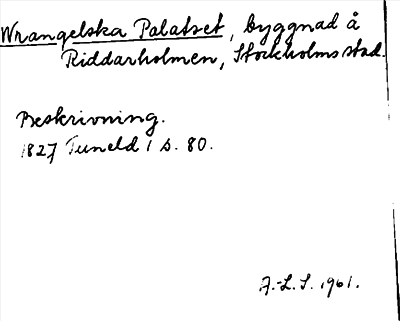 Wrangelska Palatset, byggnad å
Riddarholmen, Stockholms stad.
Beskrivning.
1827 Tuneld 1 s. 80.
A.-L.S. 1961.